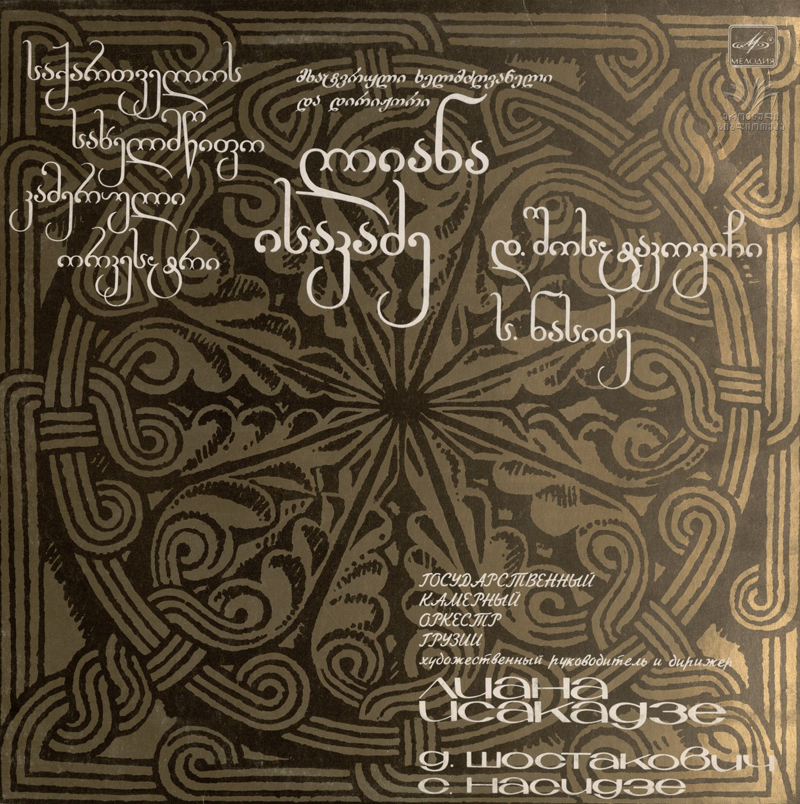 საქართველოს
სახელმწიფო
კამერული
ორკესტრი
მხატვრული ხელმძღვანელი
და დირიჟორი
ლიანა
ისაკაძე
დ. შოსტაკოვიჩი
ს. ნასიძე
МЕЛОДИЯ
ეროვნული
ბიბლიოთეკა
ГОСУДАРСТВЕННЫЙ
КАМЕРНЫЙ
ОРКЕСТР
ГРУЗИИ
художественный руководитель и дирижер
ЛИАНА
ИСАКАДЗЕ
Д. ШОСТАКОВИЧ
С. НАСИДЗЕ